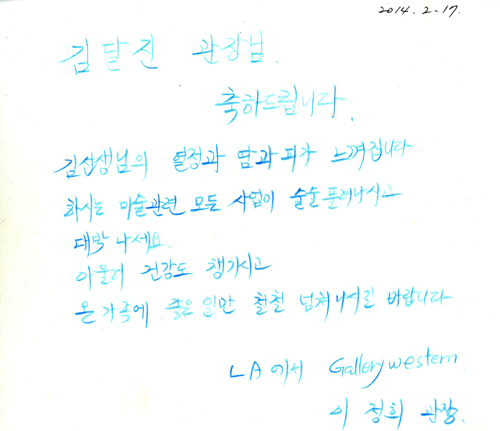 2014. 2-17.
김달진 관장님.
축하드립니다.
김선생님의 열정과 땀과 피가 느껴집니다
하시는 미술관련 모든 사업이 술술 풀려나시고
대박 나세요.
아울러 건강도 챙기시고
온 가족에 좋은 일만 철철 넘쳐나시길 바랍니다
LA에서 Gallery western
이 정희 관장.